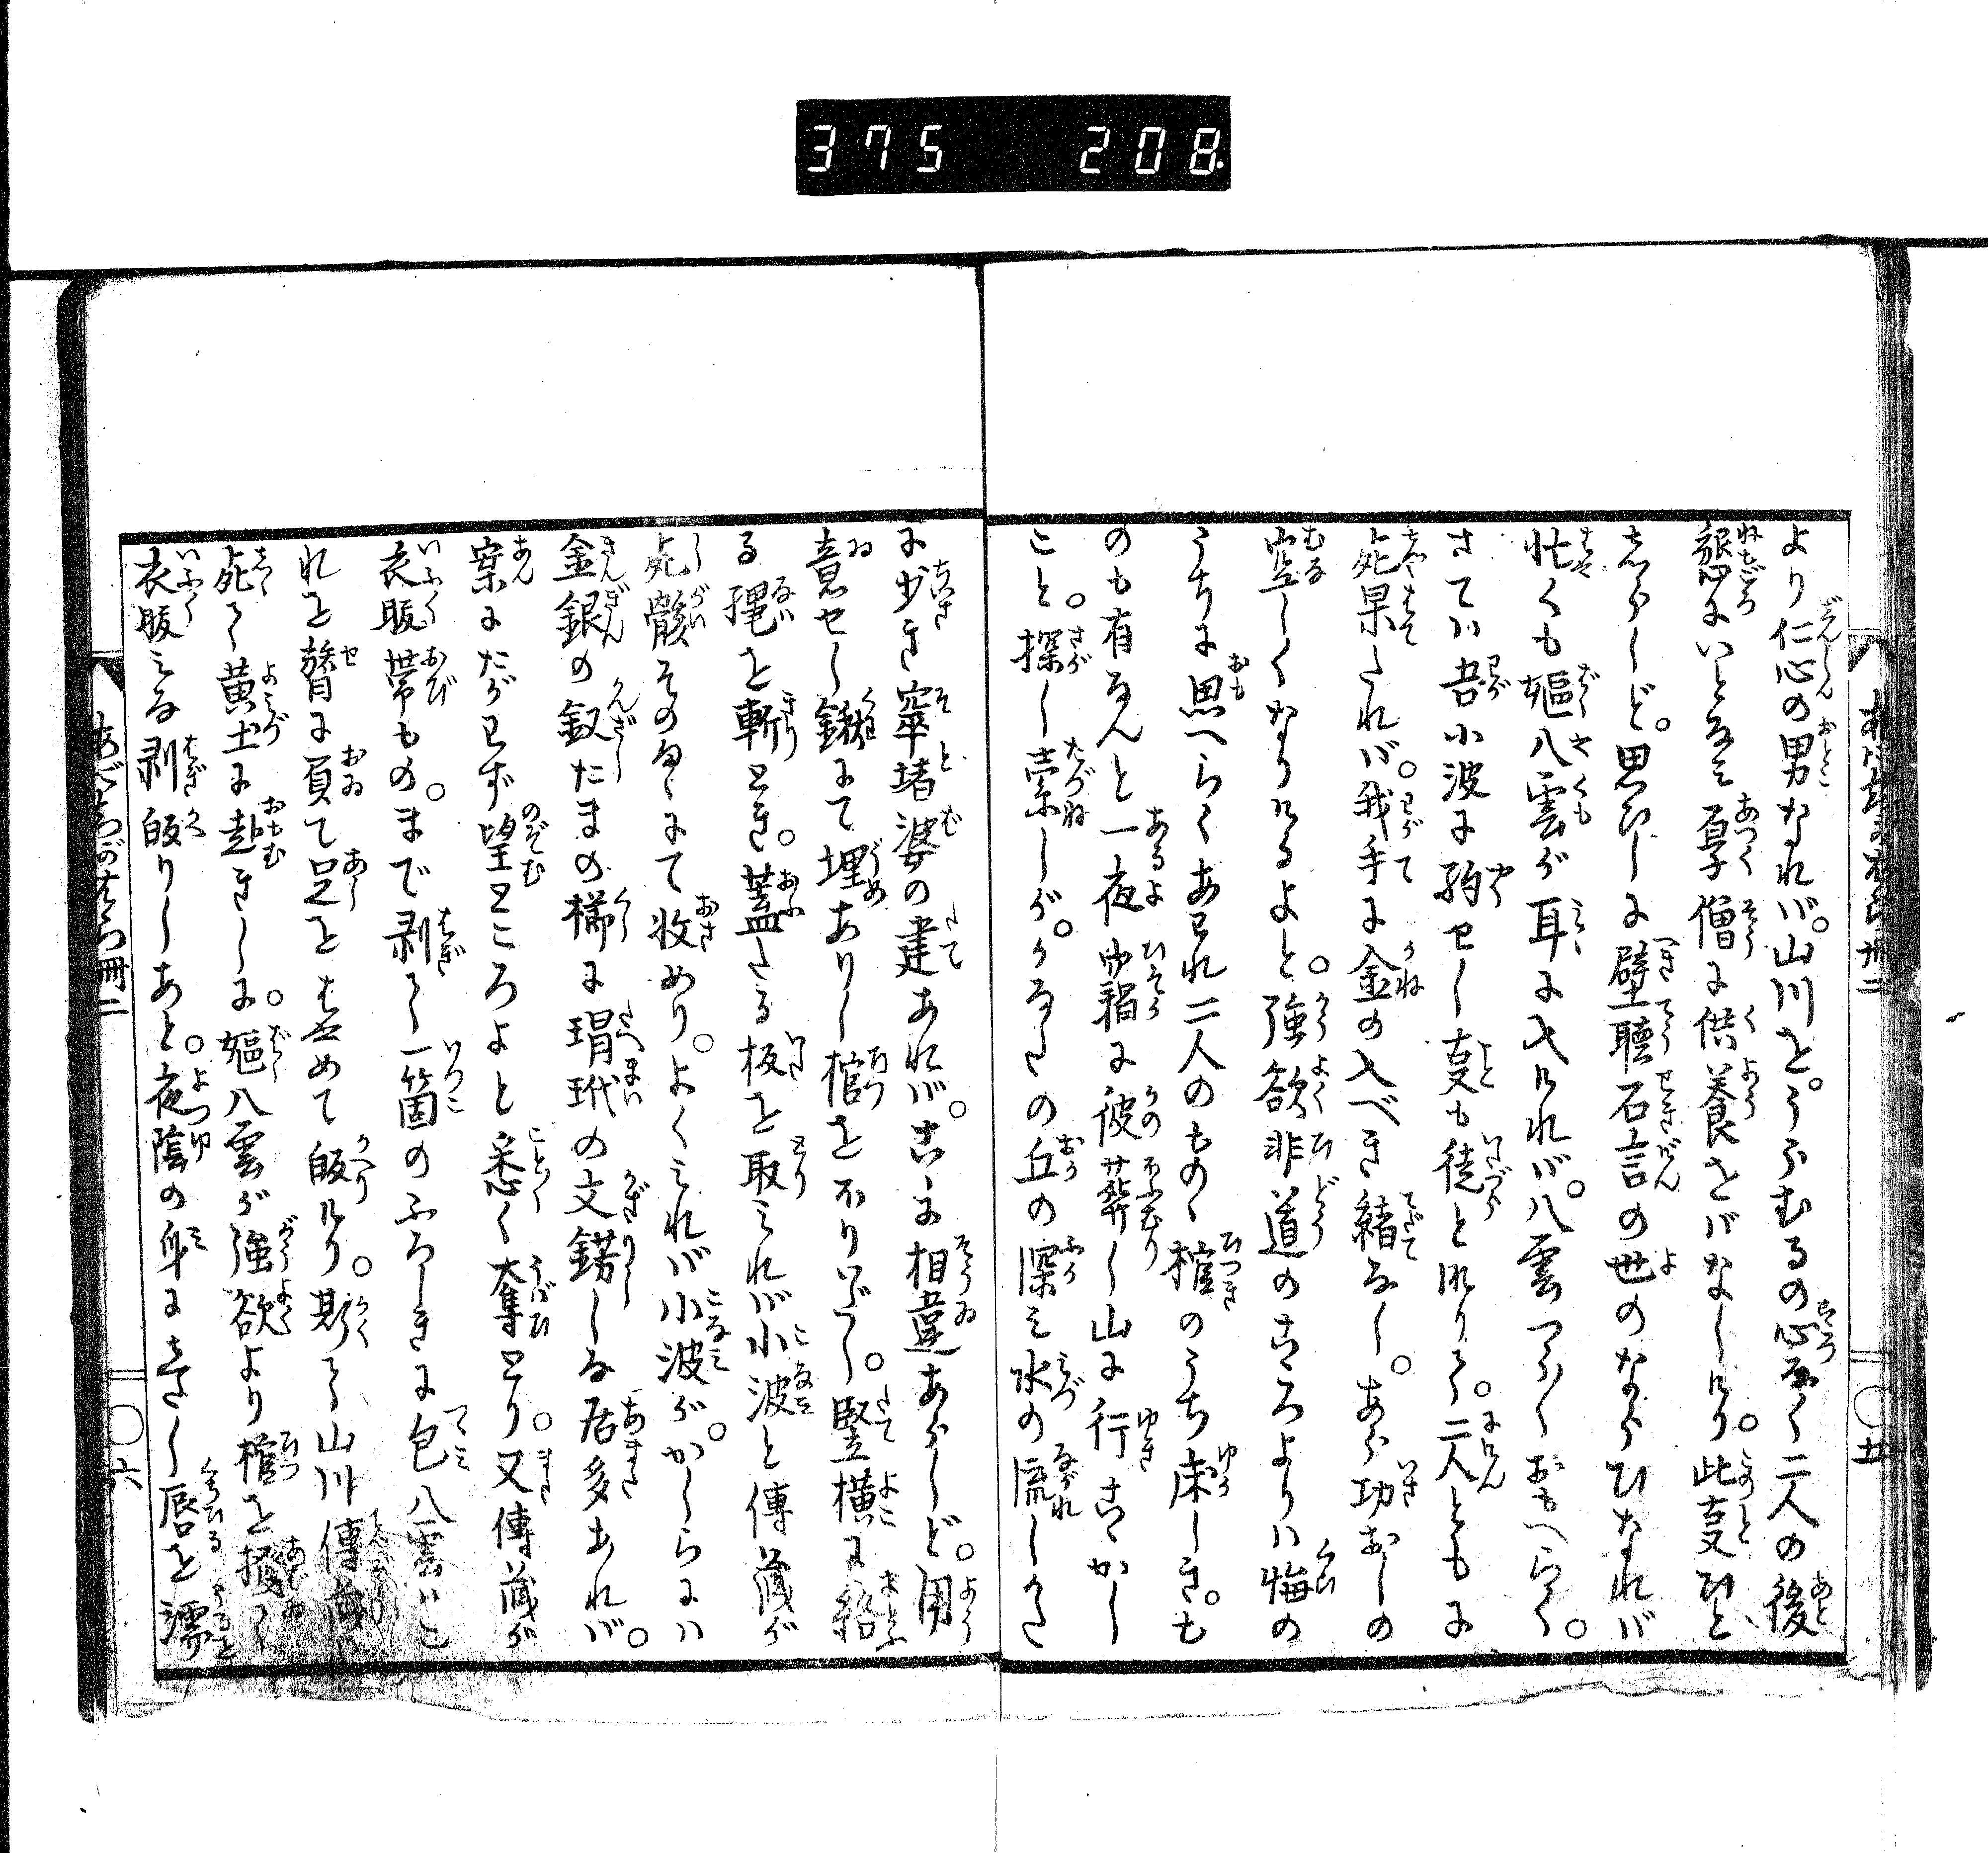 375 208
より仁心の男なれば。山川を。うらむるの心なく二人の後
懇にいとなみ厚く僧に供養をばなしけり。此事ひと
しらじと。思ひしに壁聴石言の世のならひなれば
忙くも嫗八雲が耳に入ければ。八雲つら〱おもへらく。
さては吾小波に約せし事も徒となりて。二人ともに
死果たれば。我手に金の入べき緒なし。あら功おしの
空しくなりけるよと。強欲非道のこゝろよりハ悔の
うちに思へらくあはれ二人のものゝ棺のうち床しき。も
のも有なんと一夜窃に彼葬し山に行こゝかし
こと。探し索しが。かなたの丘の深み水の流しかた
に少き窣堵婆の建あれば。こゝに相違あらじと。用
意せし鍬にて埋ありし棺を不りいだし。竪横に絡
る縄を斬とき。蓋たる板を取みれば小波と傳蔵が
死骸そのまゝにて収めり。よくみれば小波が。かしらにハ
金銀の釵たまの櫛に瑇玳の文錺しな居多あれば。
案にたがはず望ところよと悉く奪とり。又傳蔵が
衣服帯もの。まで剥て一箇のふろしきに包八雲ハこ
れを膂に負て足をはやめて皈けり。斯て山川傳蔵ハ
死て黄土に赴きしに。嫗八雲が強欲より棺を撥て
衣服みな剥皈りしあと。夜陰の身にきたし唇を濡
〇五
〇六